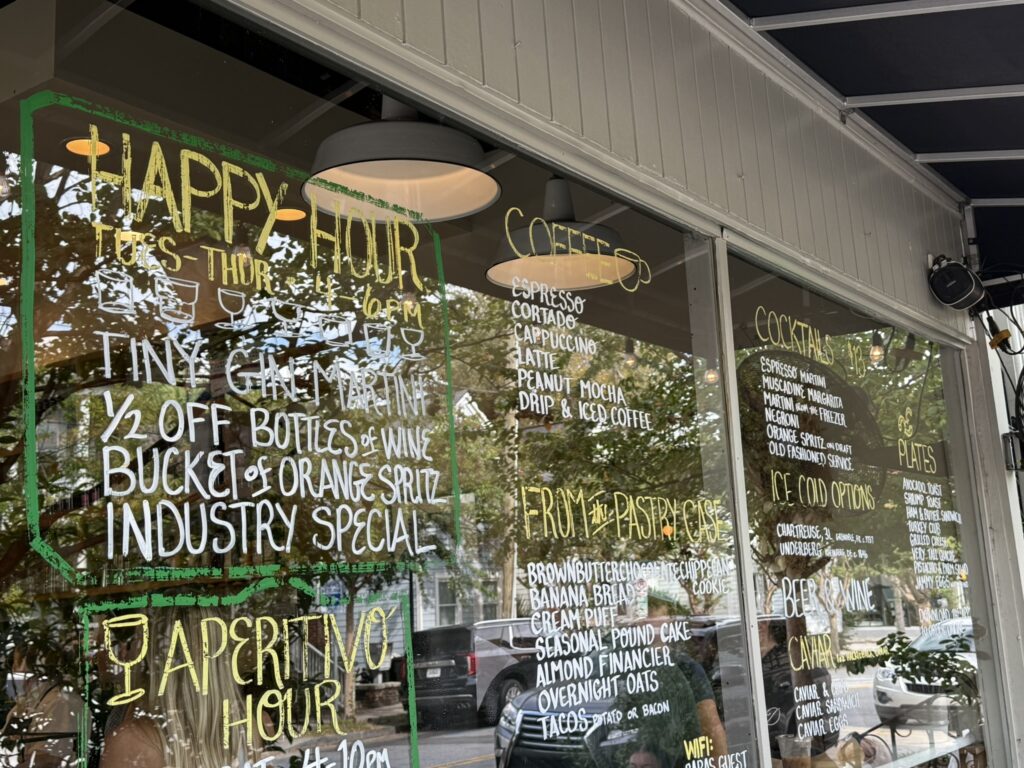 HAPPY HOUR
TUES-THUR · 4-6PM
TINY GIN MARTINI
1/2 OFF BOTTLES of WINE
BUCKET of ORANGE SPRITZ
INDUSTRY SPECIAL
APERITIVO
HOUR
4-10PM
COFFEE
ESPRESSO
CORTADO
CAPPUCCINO
LATTE
PEANUT MOCHA
DRIP & ICED COFFEE
FROM the PASTRY CASE
BROWN BUTTER CHOCOLATE CHIP PECAN
COOKIE
BANANA BREAD
CREAM PUFF
SEASONAL POUND CAKE
ALMOND FINANCIER
OVERNIGHT OATS
TACOS POTATO OR BACON
WIFI:
GUEST
COCKTAILS
ESPRESSO MARTINI
MUSCADINE MARGARITA
MARTINI FROM the FREEZER
NEGRONI
ORANGE SPRITZ ON DRAFT
OLD FASHIONED SERVICE
ICE COLD OPTIONS
CHARTREUSE, 3L
UNDERBERG
BEER & WINE
CAVIAR
CAVIAR &
CAVIAR SANDWICH
CAVIAR EGGS
PLATES
AVOCADO TOAST
SHRIMP TOAST
HAM & BUTTER SANDWICH
TURKEY CLUB
GRILLED CHEESE
JAMMY EGGS